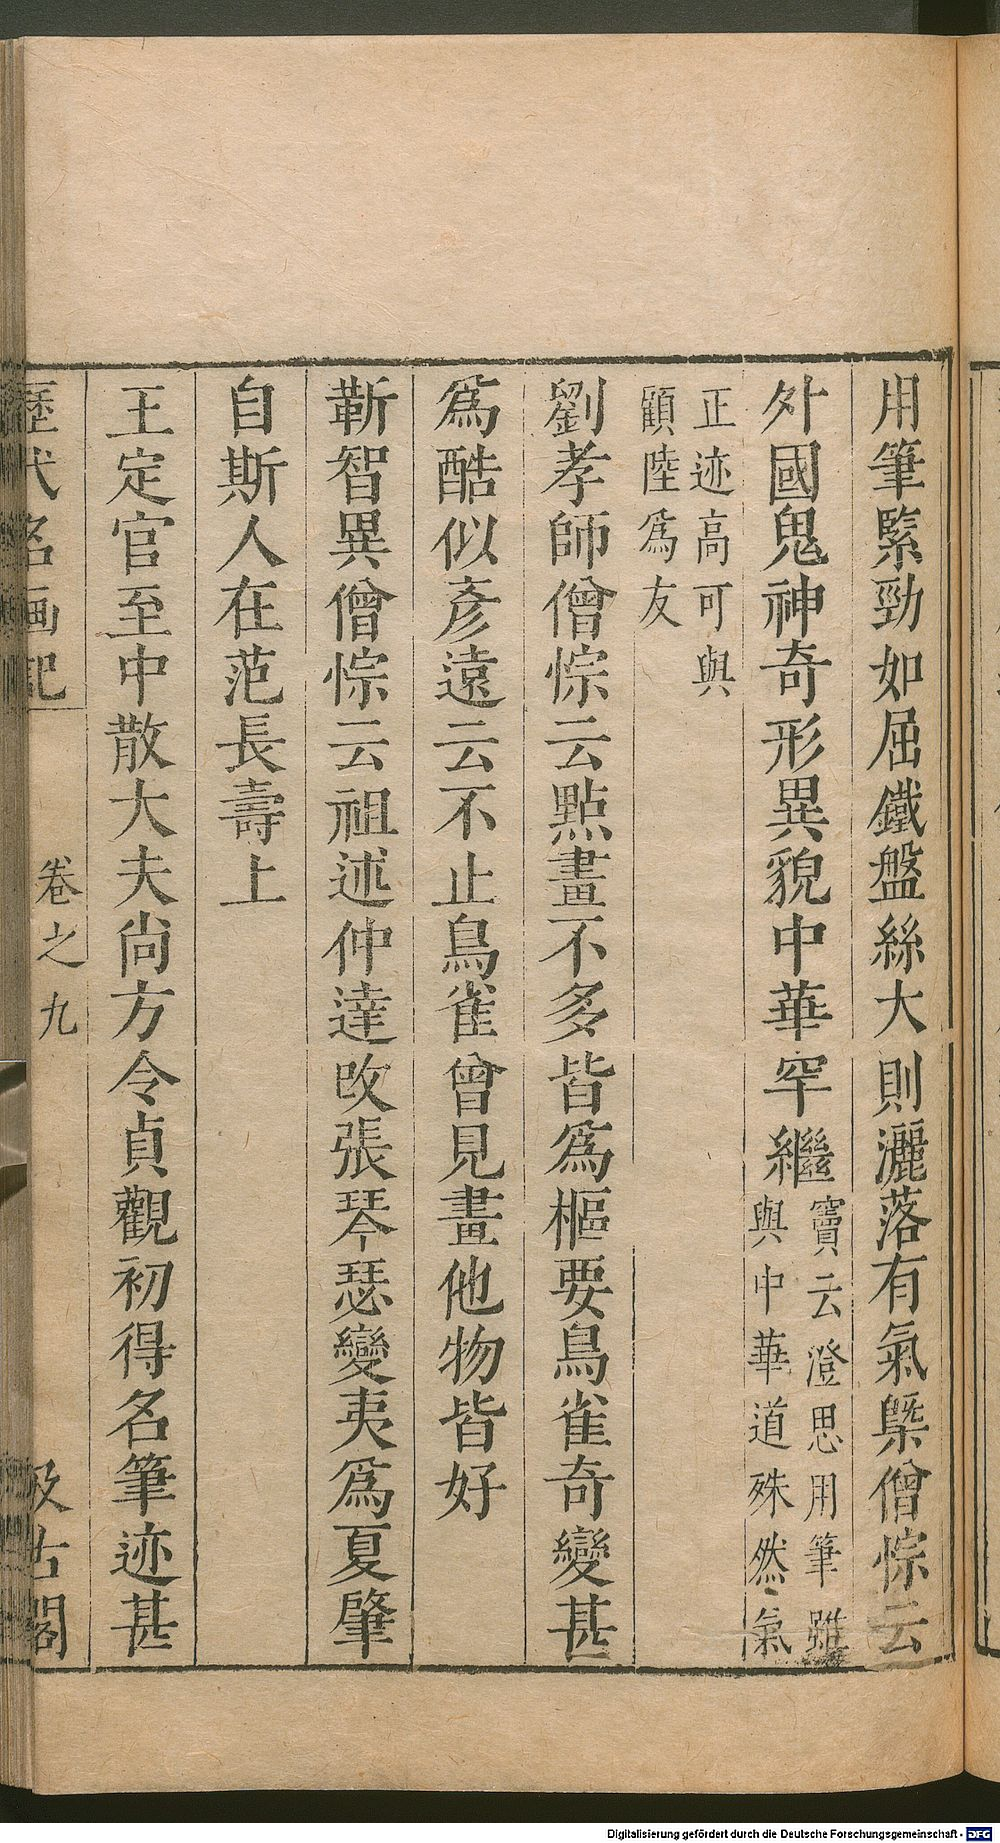 用筆緊勁如屈鐵盤絲大則灑落有氣槩僧悰云
外國鬼神奇形異貌中華罕繼
竇云澄思用筆雖
與中華道殊然氣
正迹高可與
顧陸爲友
劉孝師僧悰云點畫不多皆爲樞要鳥雀奇變甚
爲酷似彥遠云不止鳥雀曾見畫他物皆好
靳智異僧悰云祖述仲達攺張琴瑟變夷爲夏肇
自斯人在范長壽上
王定官至中散大夫尚方令貞觀初得名筆迹甚
歷代名画記
卷之九
汲古閣
Digitalisierung gefördert durch die Deutsche Forschungsgemeinschaft - DFG